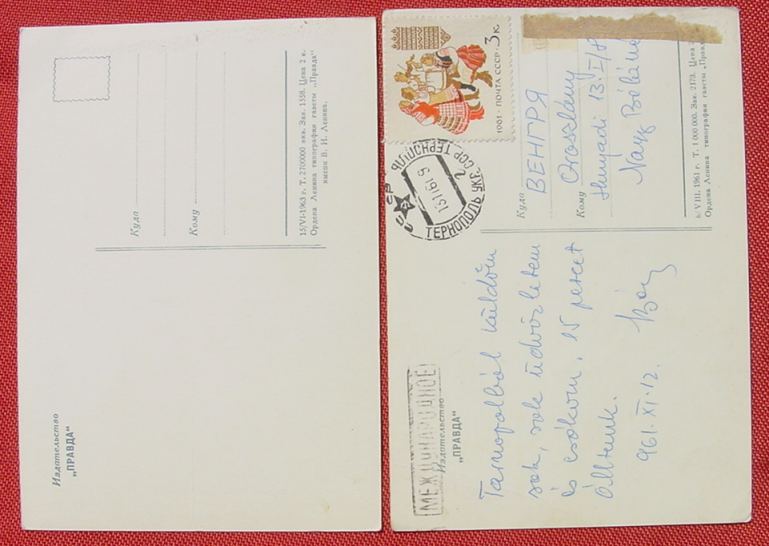 Куда
Кому
15/VI-1963 г. Т. 2700000 экз. Зак. 1559. Цена 2 к.
Ордена Ленина типография газеты „Правда“
имени В. И. Ленина.
Издательство
„ПРАВДА“
1961 · ПОЧТА СССР 3 к.
ТЕРНОПОЛЬ УКР. ССР ТЕРНОПОЛЬ
Куда
ВЕНГРЯ
Oroszlány
Кому
Hunyadi 13. I/8
Nagy Béláné
VIII. 1961 г. Т. 1 000 000. Зак. 2173. Цена
Ордена Ленина типография газеты „Правда“
МЕЖДУНАРОДНОЕ
Издательство
„ПРАВДА“
Tarnopolból küldöm
sok, sok üdvözletem
és csókom, 15 percet
álltunk.
961. XI. 12.